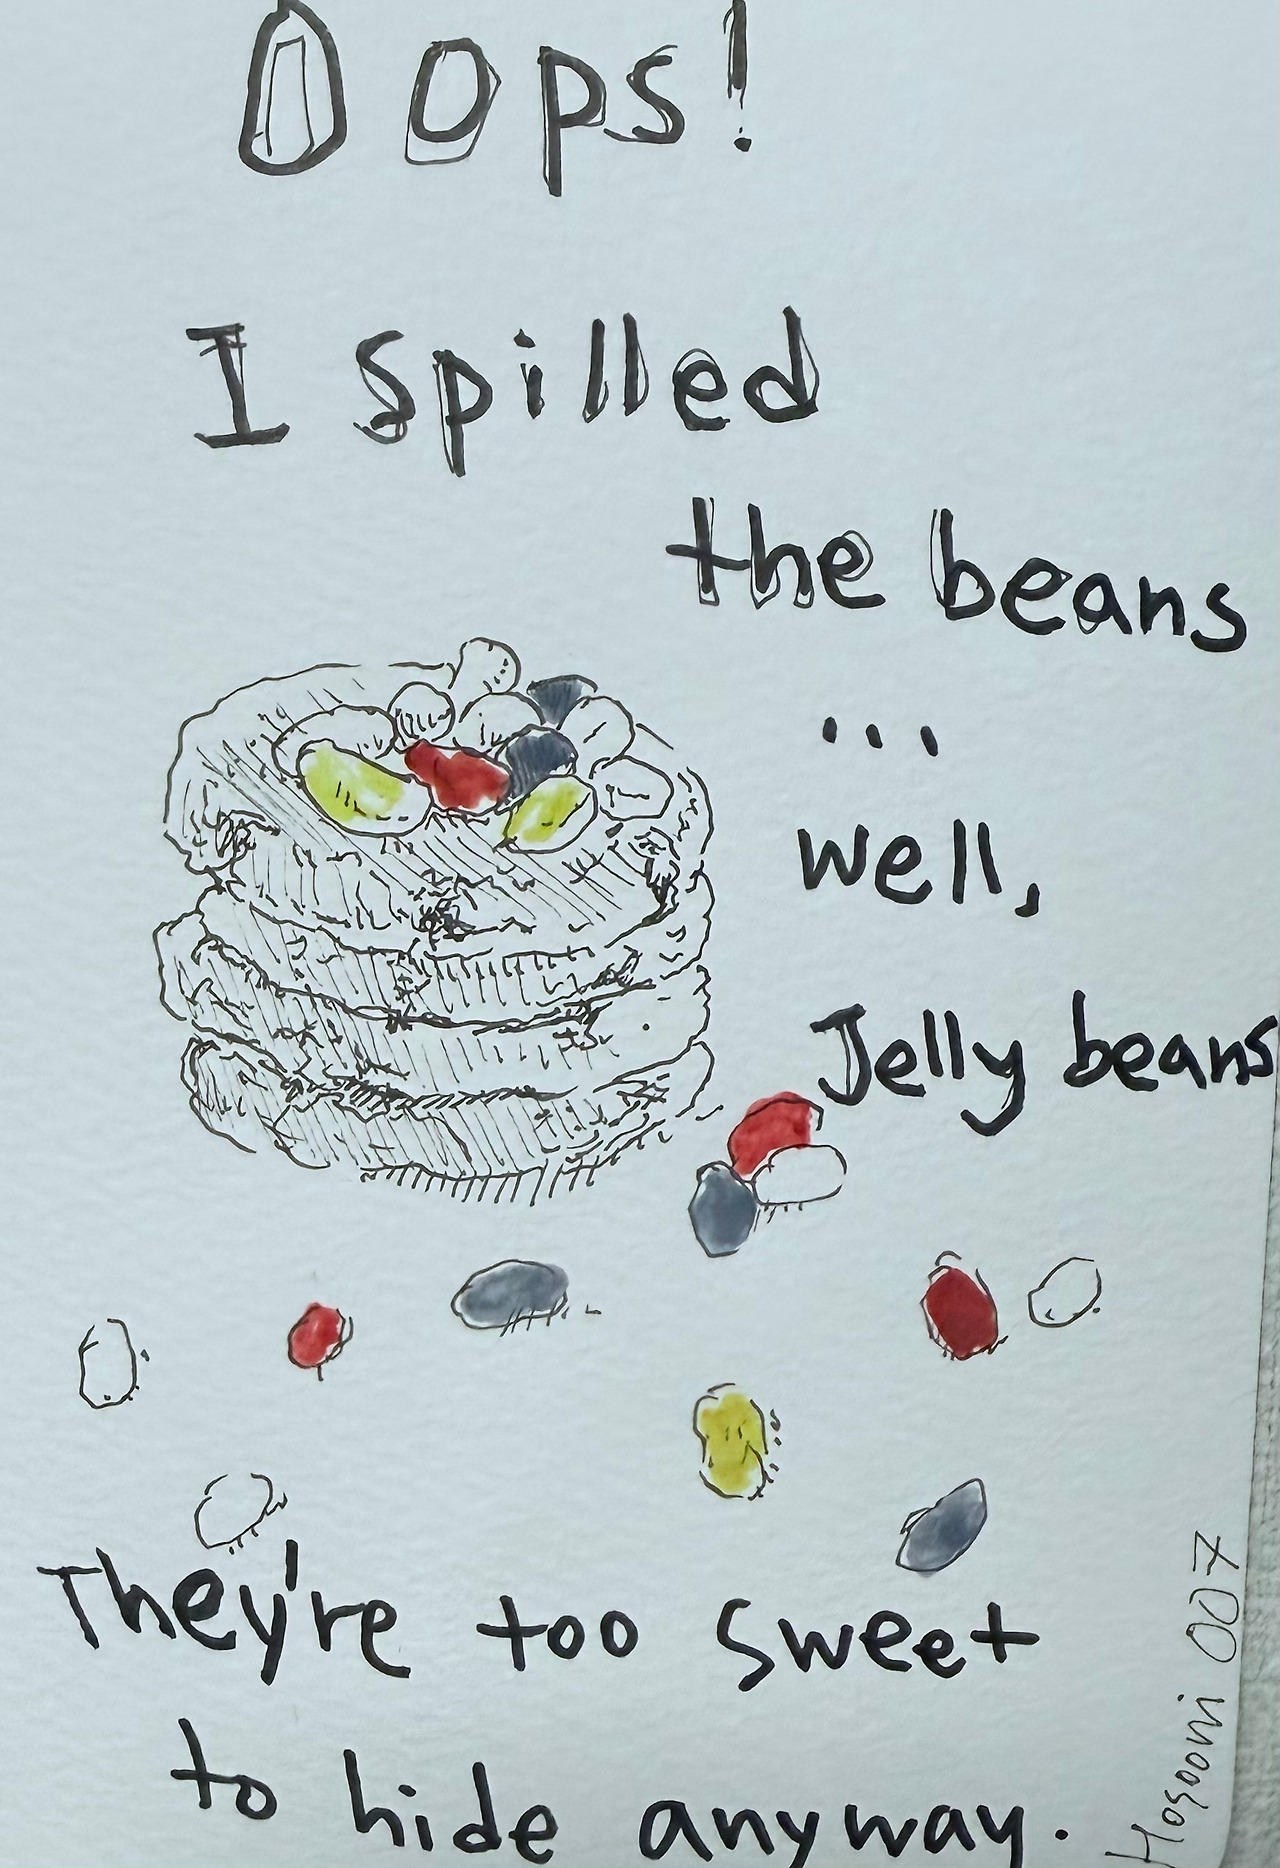 Oops!
I spilled
the beans
...
well,
Jelly beans
They're too sweet
to hide anyway.
Hosooni 007